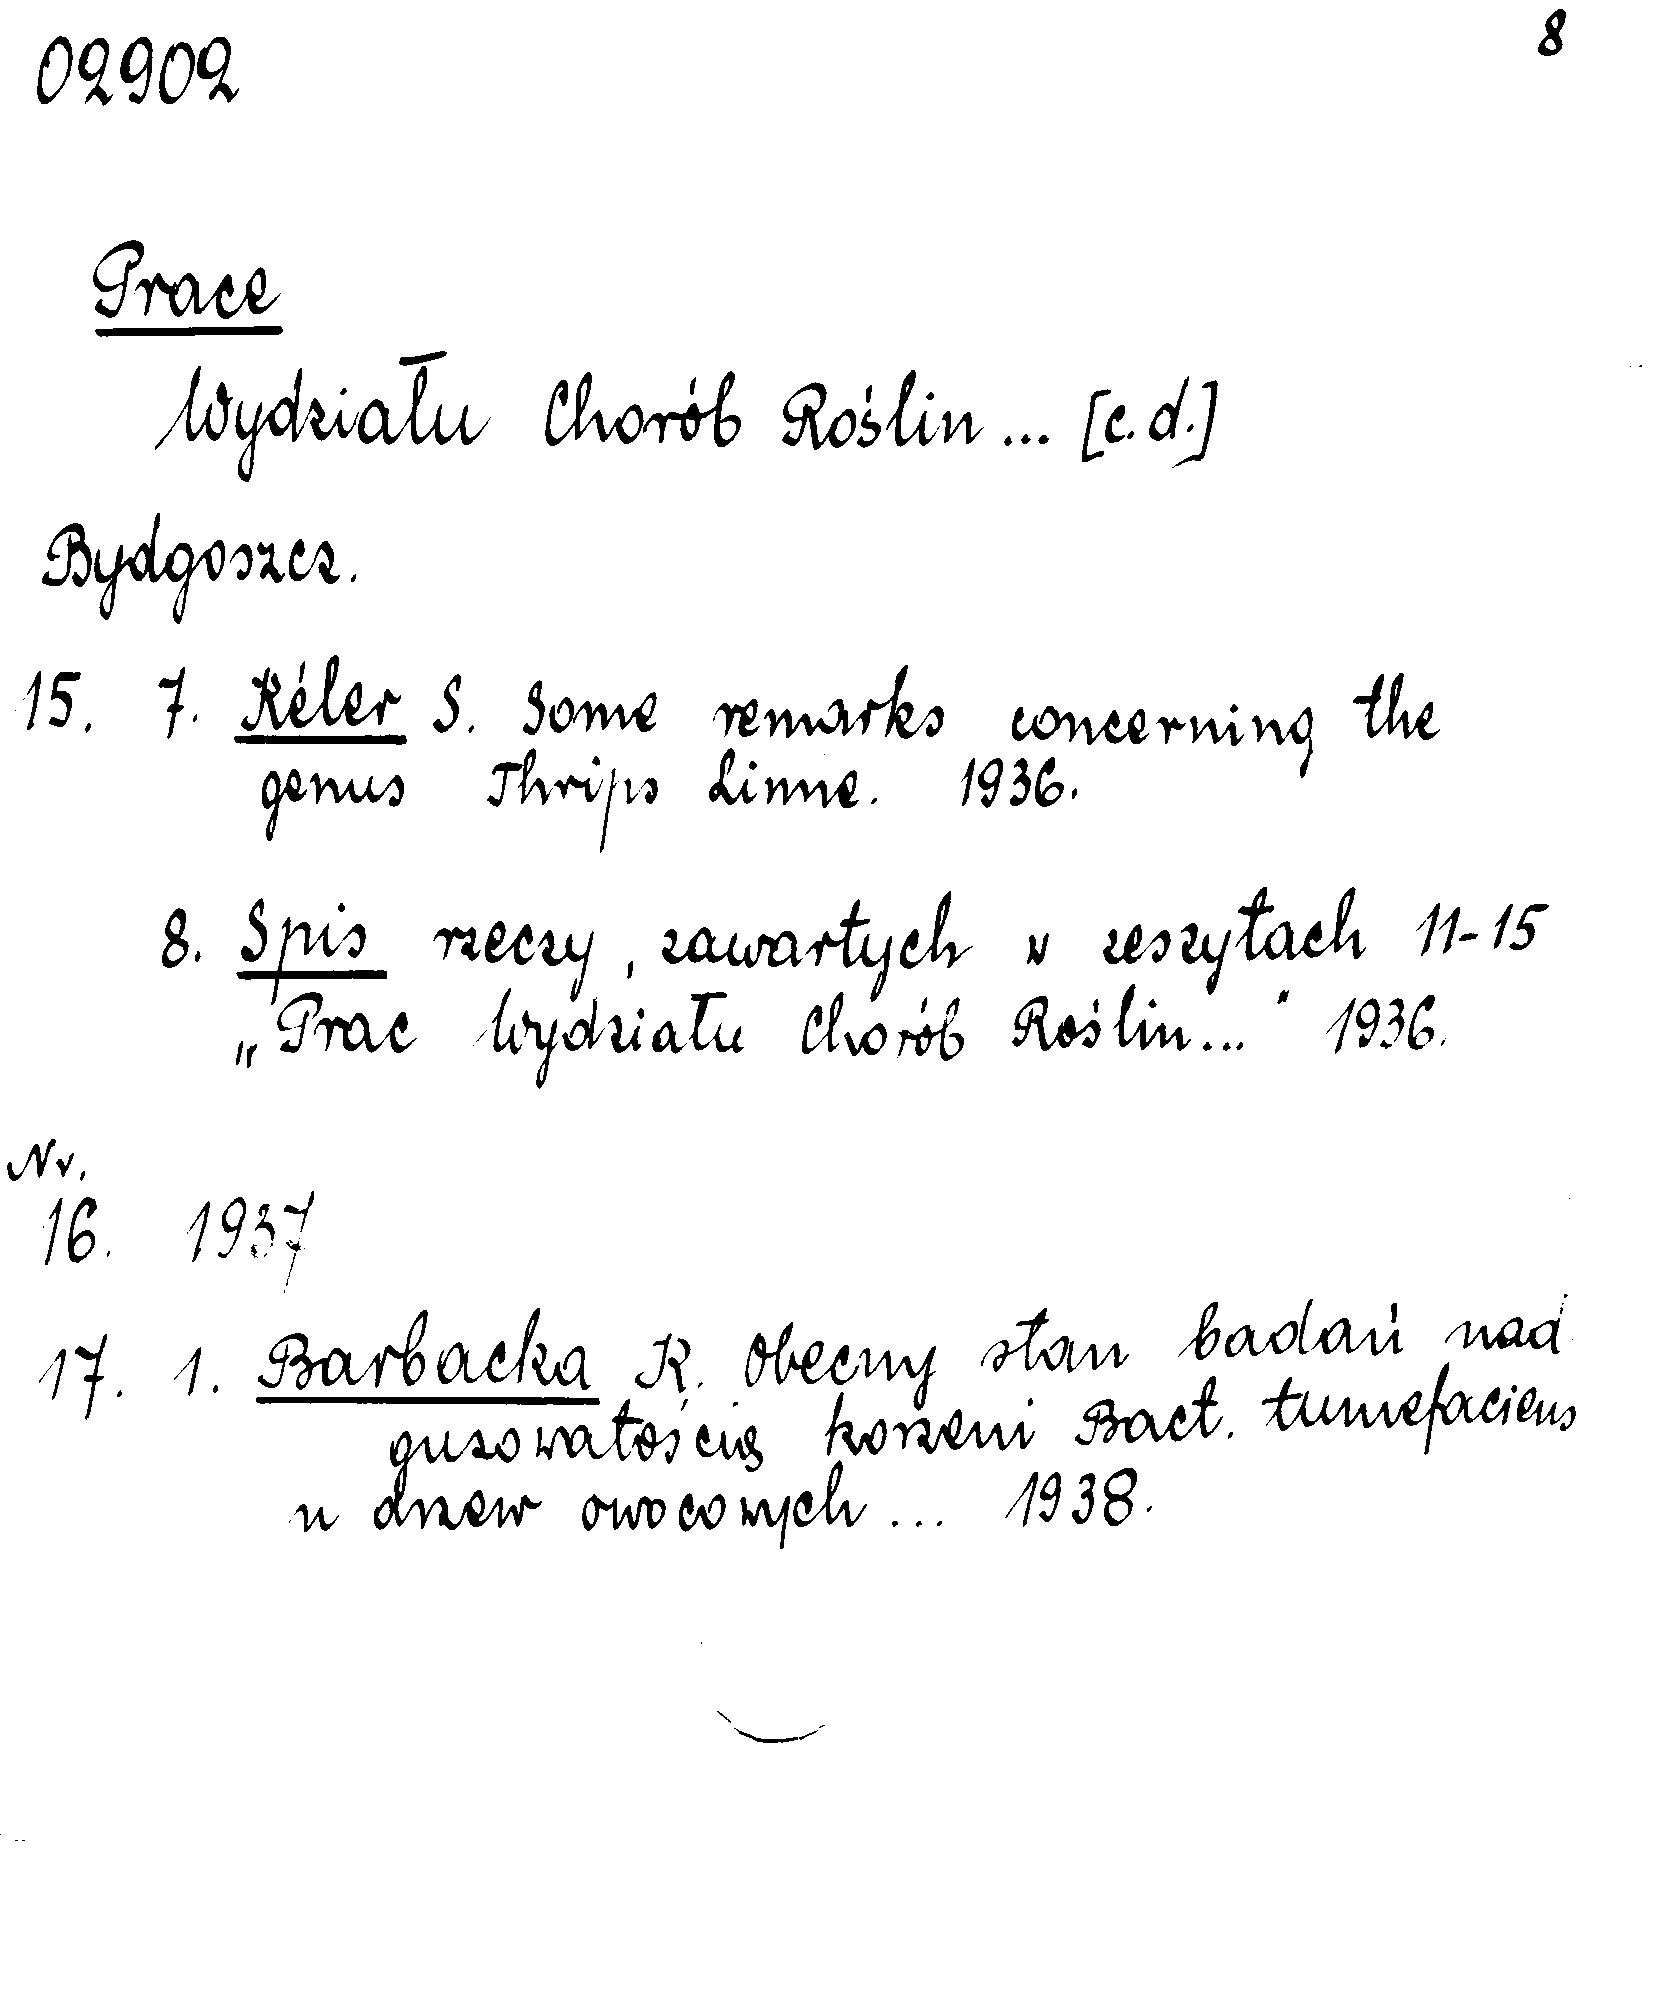 02902 8
Prace
Wydziału Chorób Roślin... [c.d.]
Bydgoszcz.
15. 7. Kéler S. Some remarks concerning the
genus Thrips Linne. 1936.
8. Spis rzeczy, zawartych w zeszytach 11-15
„Prac Wydziału Chorób Roślin..." 1936.
Nr.
16. 1937
17. 1. Barbacka K. Obecny stan badań nad
guzowatością korzeni Bact. tumefaciens
u drzew owocowych... 1938.